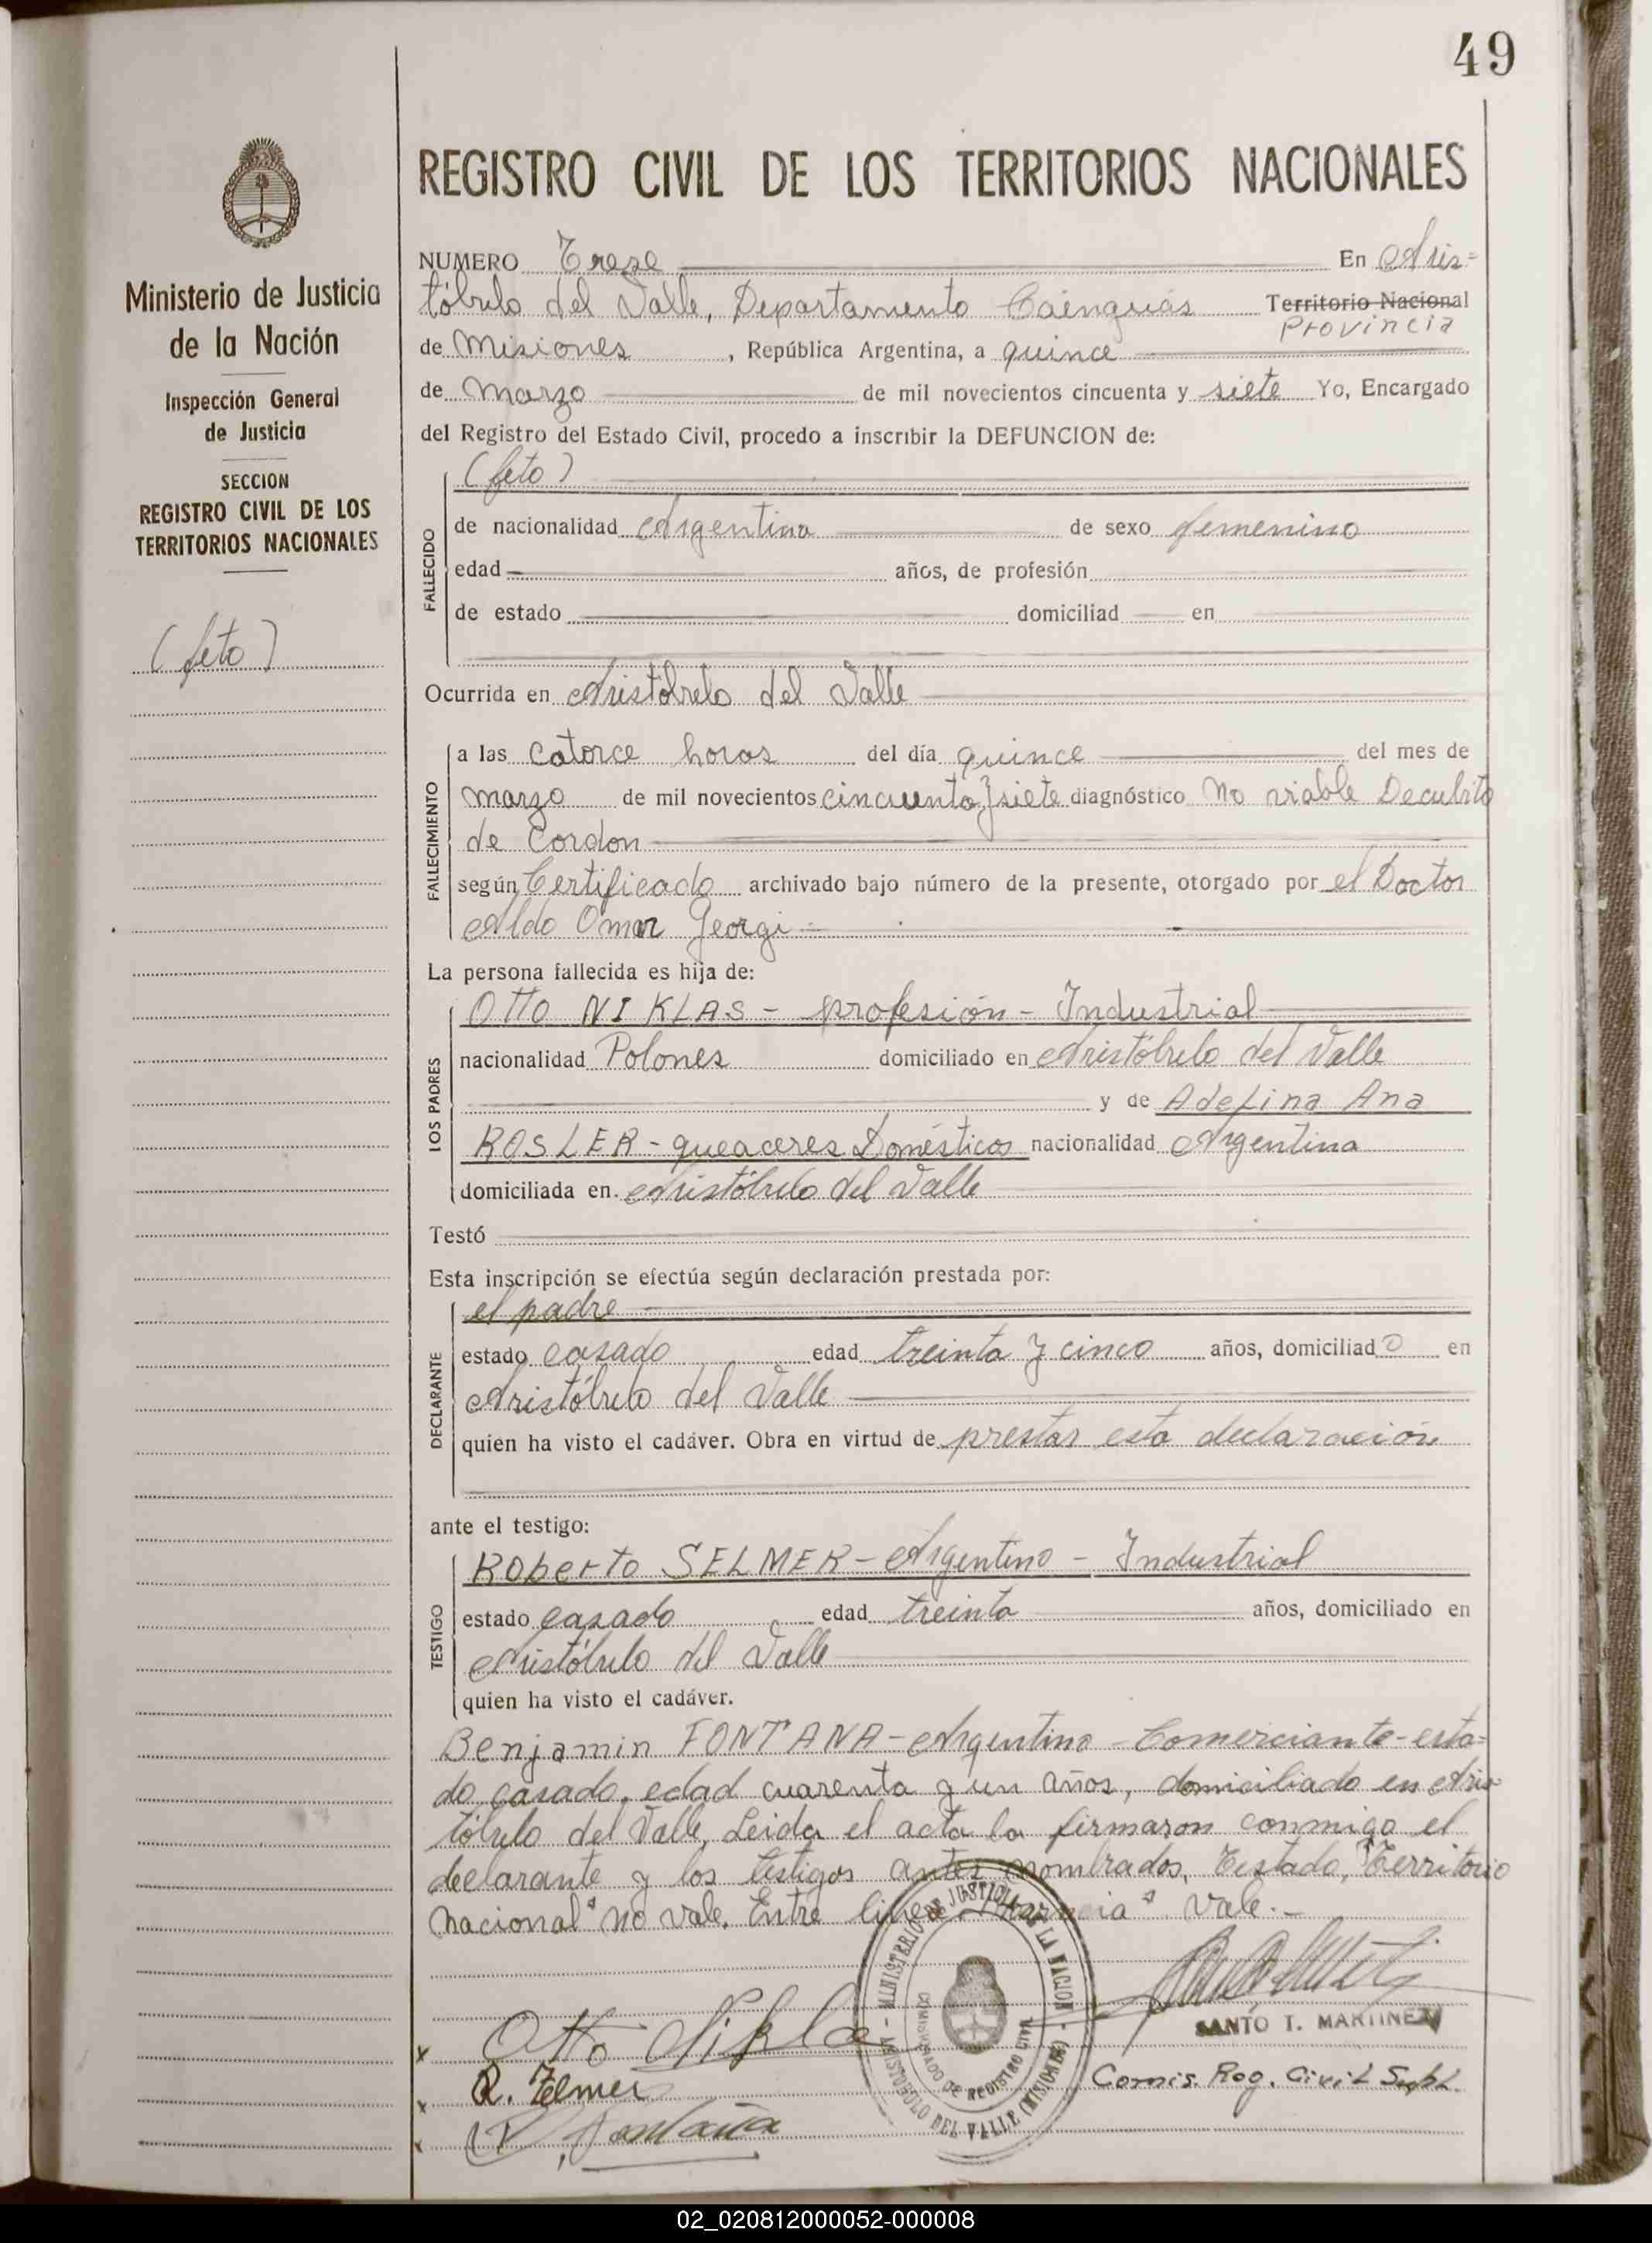 49
REGISTRO CIVIL DE LOS TERRITORIOS NACIONALES
Ministerio de Justicia
de la Nación
Inspección General
de Justicia
SECCION
REGISTRO CIVIL DE LOS
TERRITORIOS NACIONALES
(feto)
NUMERO Trese En Aris=
tóbulo del Valle, Departamento Cainguás Territorio Nacional
Provincia
de Misiones, República Argentina, a quince
de Marzo de mil novecientos cincuenta y siete Yo, Encargado
del Registro del Estado Civil, procedo a inscribir la DEFUNCION de:
(feto)
FALLECIDO
de nacionalidad Argentina de sexo femenino
edad años, de profesión
de estado domiciliad en
Ocurrida en Aristóbulo del Valle
FALLECIMIENTO
a las catorce horas del día quince del mes de
marzo de mil novecientos cincuenta y siete diagnóstico No viable Decubito
de Cordon
según Certificado archivado bajo número de la presente, otorgado por el Doctor
Aldo Omar Georgi
La persona fallecida es hija de:
LOS PADRES
Otto NIKLAS - profesión - Industrial
nacionalidad Polones domiciliado en Aristóbulo del Valle
y de Adelina Ana
ROSLER - queaceres Domésticos nacionalidad Argentina
domiciliada en Aristóbulo del Valle
Testó
Esta inscripción se efectúa según declaración prestada por:
DECLARANTE
el padre
estado casado edad treinta y cinco años, domiciliado en
Aristóbulo del Valle
quien ha visto el cadáver. Obra en virtud de prestar esta declaración
ante el testigo:
TESTIGO
Roberto SELMER - Argentino - Industrial
estado casado edad treinta años, domiciliado en
Aristóbulo del Valle
quien ha visto el cadáver.
Benjamin FONTANA - Argentino - Comerciante - esta=
do casado, edad cuarenta y un años, domiciliado en Aris=
tóbulo del Valle, Leida el acta la firmaron conmigo el
declarante y los testigos antes nombrados, Testado, "Territorio
Nacional" no vale. Entre linea vale.-
MINISTERIO DE JUSTICIA DE LA NACION - ARISTOBULO DEL VALLE (MISIONES)
COMISARIADO DE REGISTRO CIVIL
x Otto Niklas
SANTO T. MARTINEZ
x R. Zelmer
Comis. Reg. Civil Supl.
x B. Fontana
02_020812000052-000008